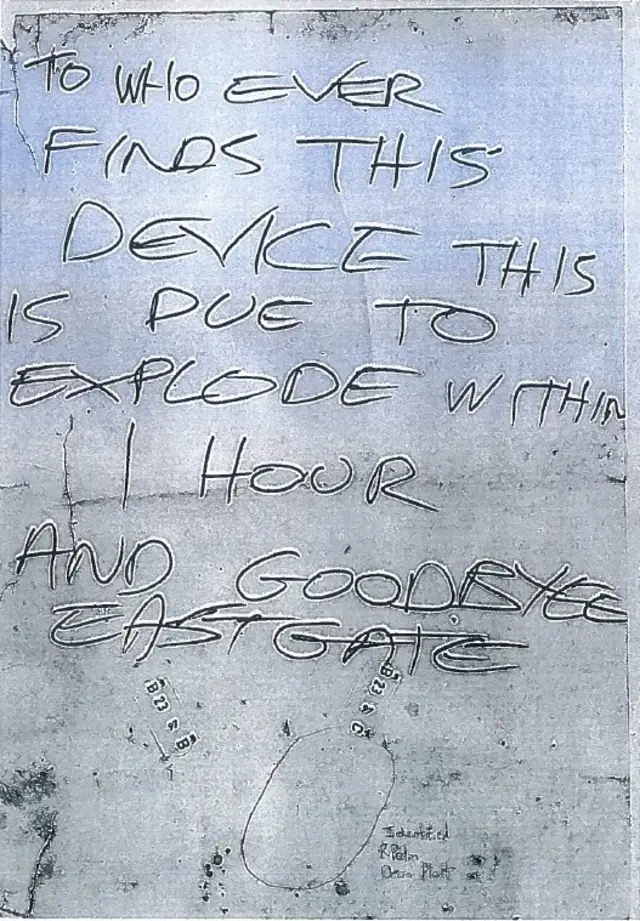 TO WHO EVER
FINDS THIS
DEVICE THIS
IS DUE TO
EXPLODE WITHIN
1 HOUR
AND GOODBYEE
EASTGATE
B 23 & B
B 23 & C
Identified
R Palm